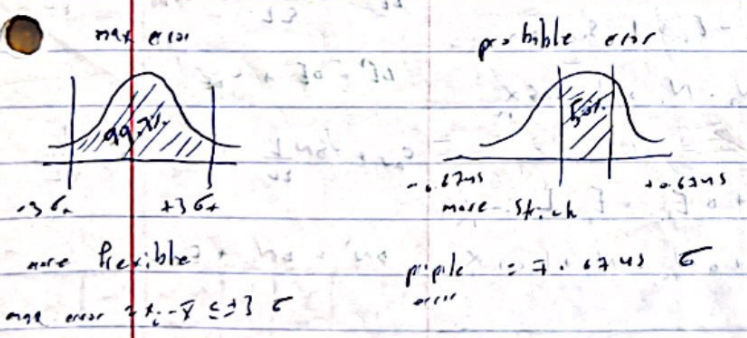 max error
99.7%
-3σ +3σ
more flexible
max error = xᵢ - x̄ ≤ ±3 σ
probible error
50%
-0.6745 +0.6745
more
error = ∓ .6745 σ